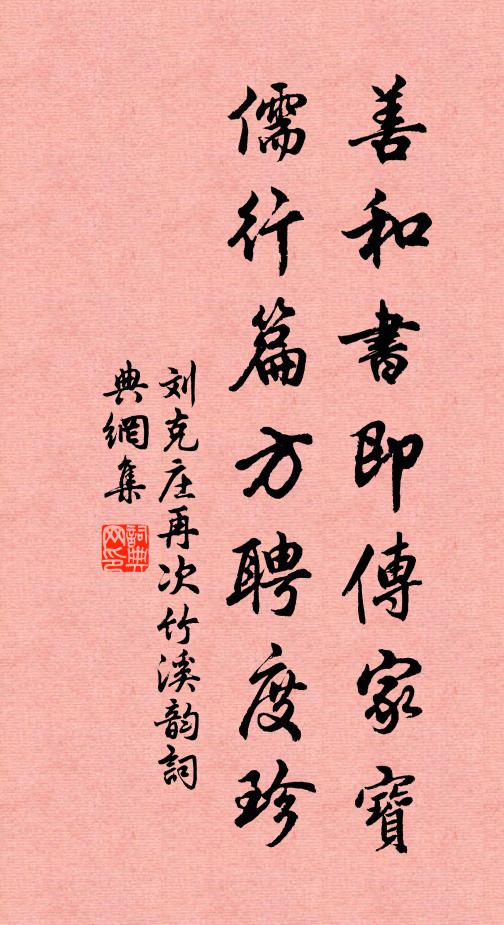 善和書即傳家寶
儒行篇方聘度珍
刘克庄再次竹溪韵詞
典網集
詞典網印